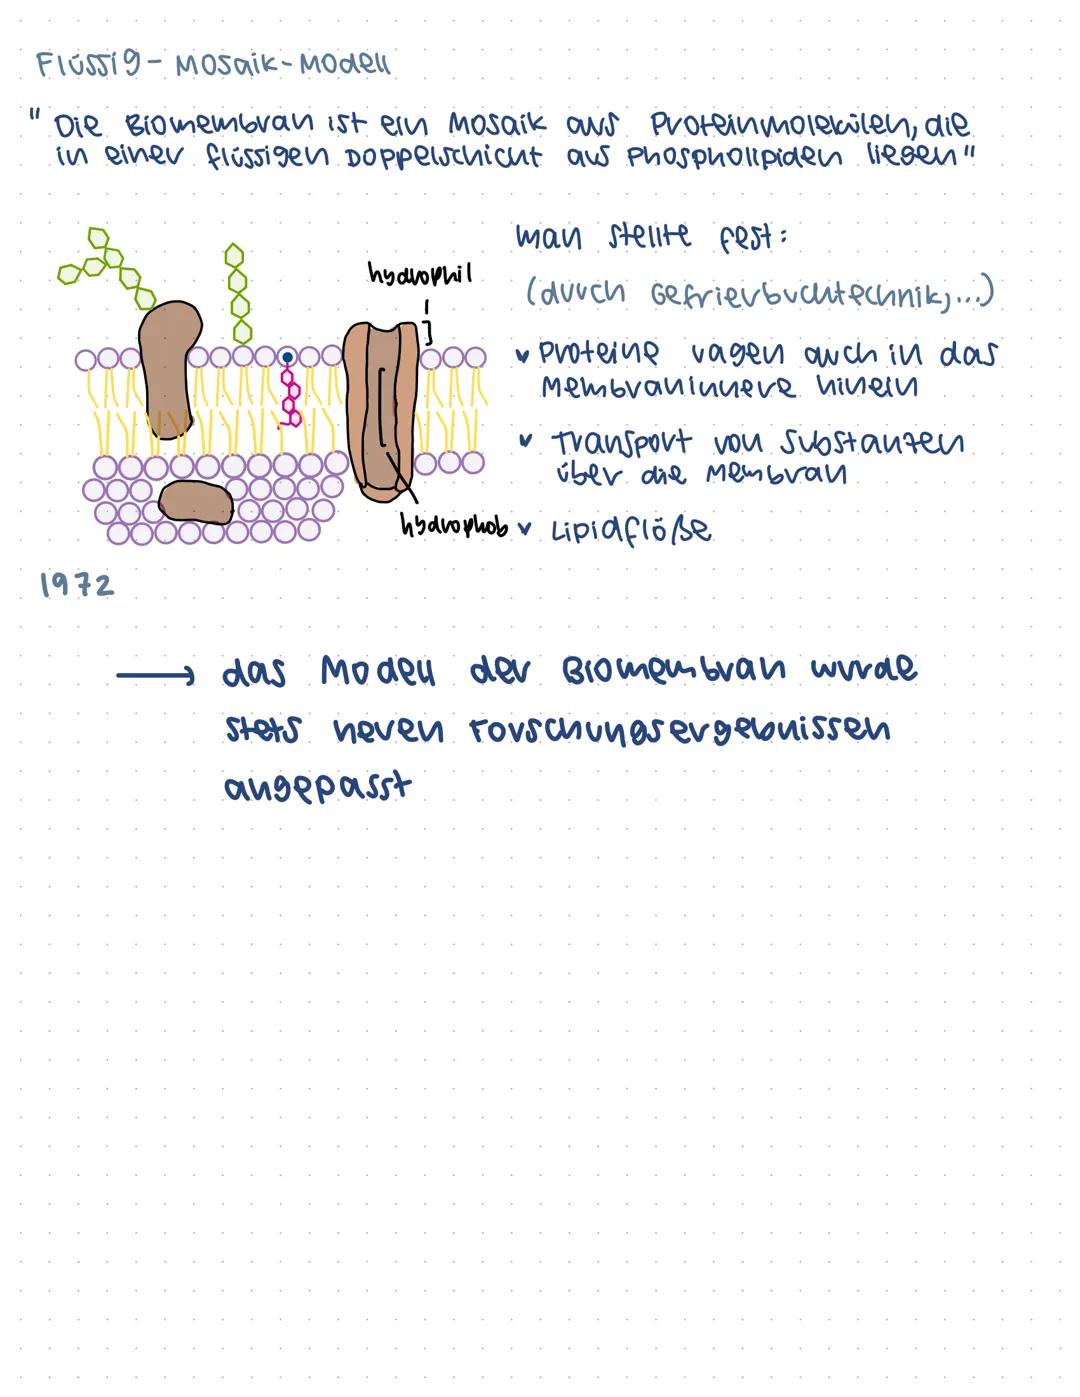 Flüssig-Mosaik-Modell
"Die Biomembran ist ein Mosaik aus Proteinmolekülen, die
in einer flüssigen Doppelschicht aus Phospholipiden liegen"
man stellte fest:
hydrophil
(durch Gefrierbuchtechnik,...)
Proteine ragen auch in das
Membraninnere hinein
Transport von Substanzen
über die Membran
hydrophob
Lipidflöße
1972
→ das Modell der Biomembran wurde
stets neuen Forschungsergebnissen
angepasst